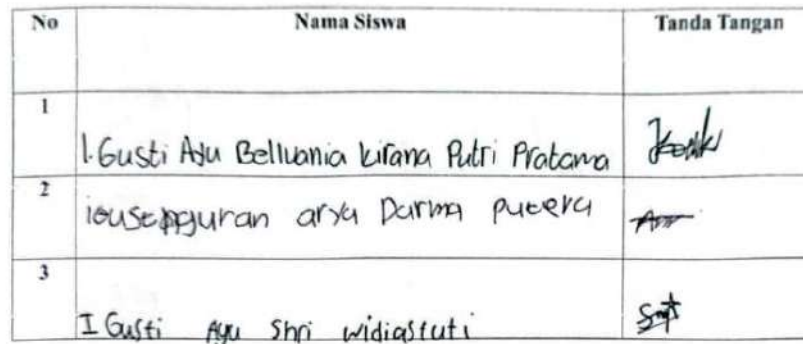 No Nama Siswa Tanda Tangan
1
I. Gusti Ayu Bellvania kirana Putri Pratama
2
arya Darma putera
3
I Gusti Ayu Shri widiastuti